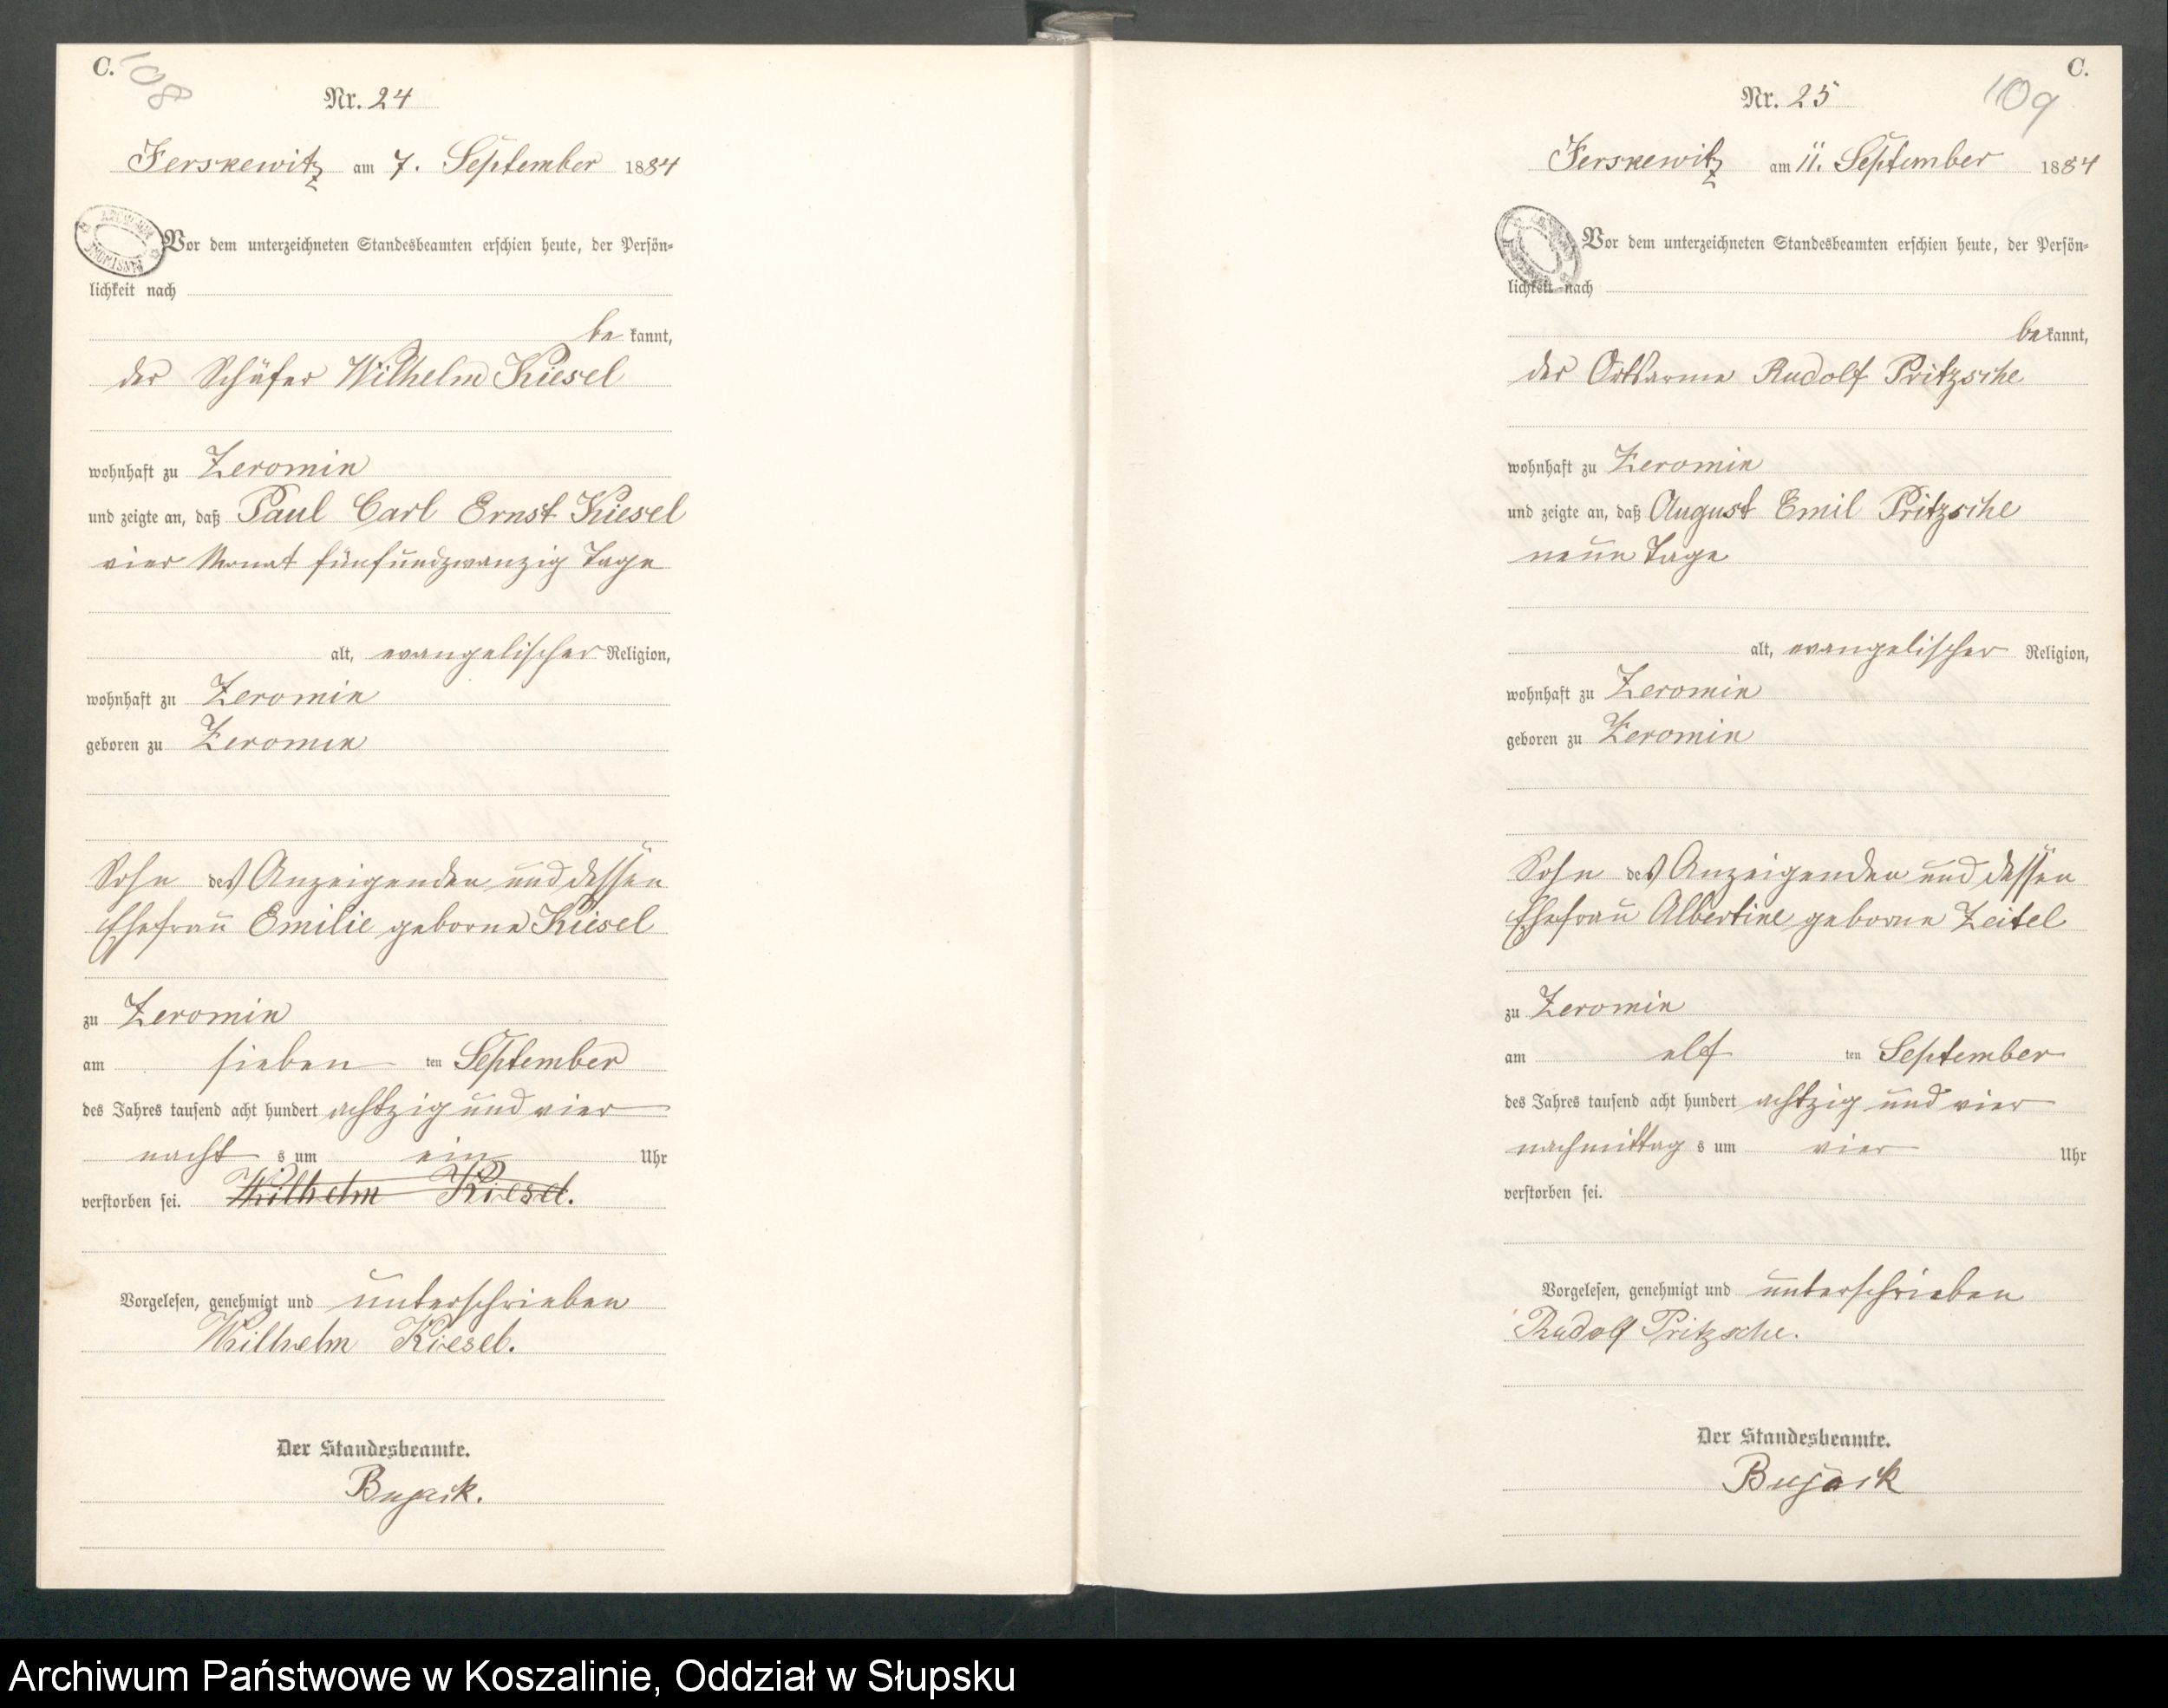 C.
108
Nr. 24
Jerskewitz am 7. September 1884
Vor dem unterzeichneten Standesbeamten erschien heute, der Persön-
lichkeit nach
be kannt,
der Schäfer Wilhelm Kiesel
wohnhaft zu Zeromin
und zeigte an, daß Paul Carl Ernst Kiesel
vier Monat fünfundzwanzig Tage
alt, evangelischer Religion,
wohnhaft zu Zeromin
geboren zu Zeromin
Sohn des Anzeigenden und dessen
Ehefrau Emilie geborne Kiesel
zu Zeromin
am sieben ten September
des Jahres tausend acht hundert achtzig und vier
nacht s um ein Uhr
verstorben sei. Wilhelm Kiesel.
Vorgelesen, genehmigt und unterschrieben
Wilhelm Kiesel.
Der Standesbeamte.
Bujack.
C.
109
Nr. 25
Jerskewitz am 11. September 1884
Vor dem unterzeichneten Standesbeamten erschien heute, der Persön-
lichkeit nach
be kannt,
der Ortsarme Rudolf Pritzsche
wohnhaft zu Zeromin
und zeigte an, daß August Emil Pritzsche
neun Tage
alt, evangelischer Religion,
wohnhaft zu Zeromin
geboren zu Zeromin
Sohn des Anzeigenden und dessen
Ehefrau Albertine geborne Zeitel
zu Zeromin
am elf ten September
des Jahres tausend acht hundert achtzig und vier
nachmittag s um vier Uhr
verstorben sei.
Vorgelesen, genehmigt und unterschrieben
Rudolf Pritzsche.
Der Standesbeamte.
Bujack
Archiwum Państwowe w Koszalinie, Oddział w Słupsku